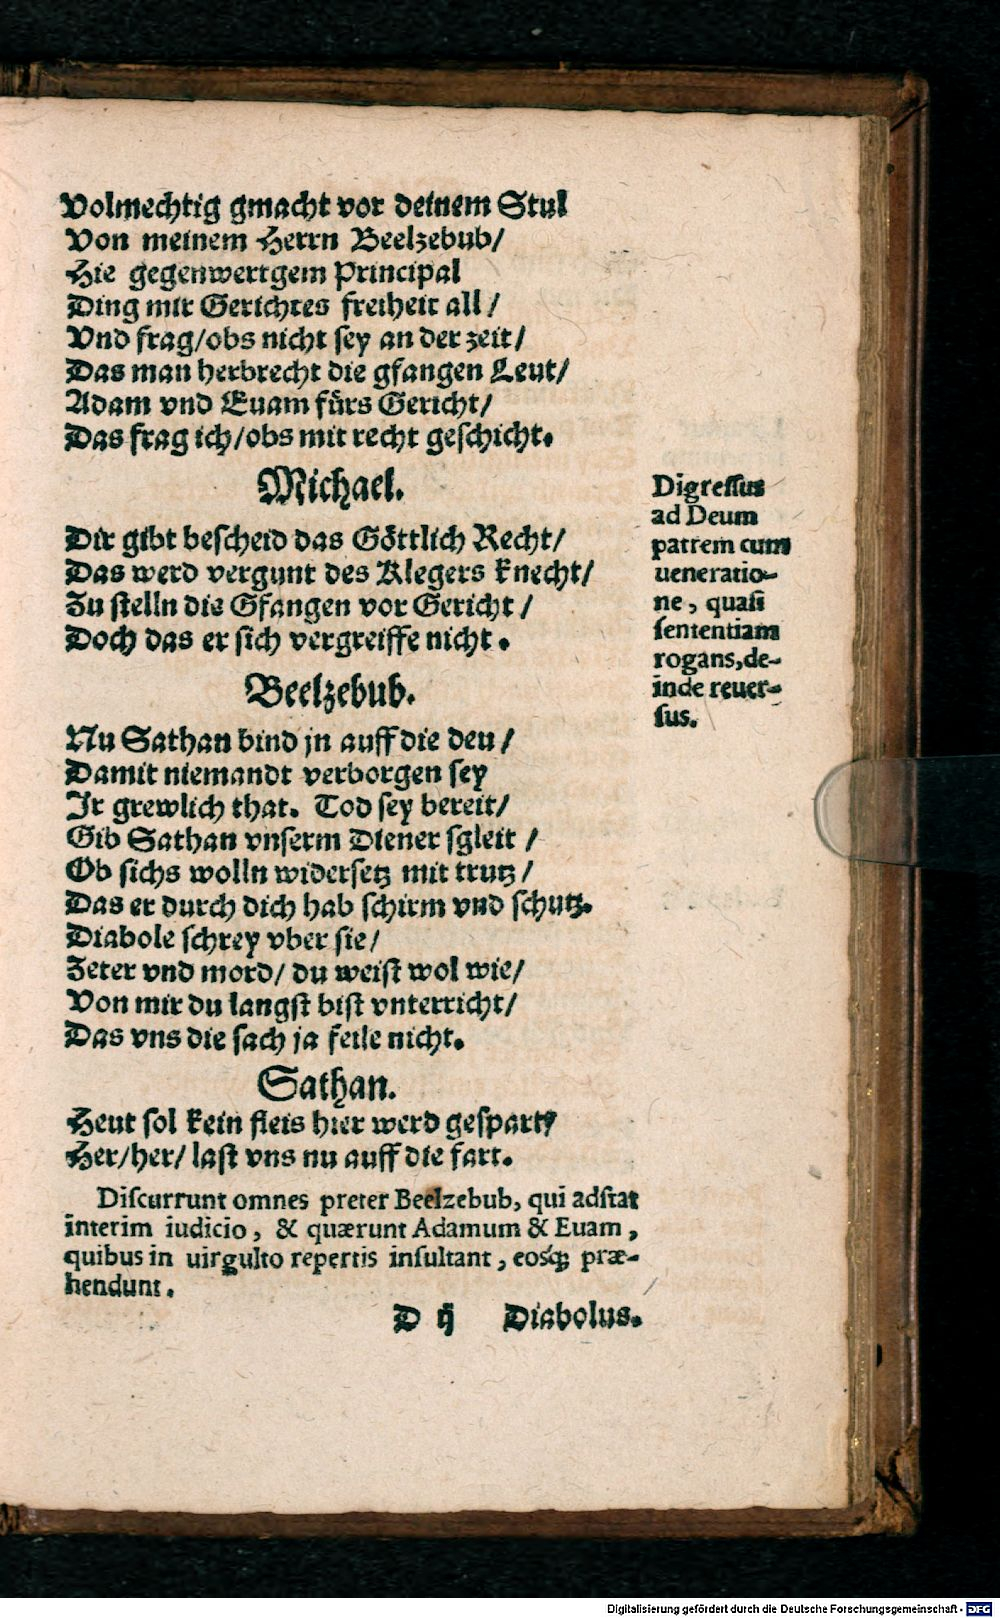 Volmechtig gmacht vor deinem Stul
Von meinem Herrn Beelzebub/
Hie gegenwertgem Principal
Ding mir Gerichtes freiheit all/
Vnd frag/obs nicht sey an der zeit/
Das man herbrecht die gfangen Leut/
Adam vnd Euam fürs Gericht/
Das frag ich/obs mit recht geschicht.
Michael.
Dir gibt bescheid das Göttlich Recht/
Das werd vergunt des Klegers knecht/
Zu stelln die Gfangen vor Gericht/
Doch das er sich vergreiffe nicht.
Digressus
ad Deum
patrem cum
ueneratio-
ne, quasi
sententiam
rogans, de-
inde reuer-
sus.
Beelzebub.
Nu Sathan bind jn auff die deu/
Damit niemandt verborgen sey
Jr grewlich that. Tod sey bereit/
Gib Sathan vnserm Diener sgleit/
Ob sichs wolln widersetz mit trutz/
Das er durch dich hab schirm vnd schutz.
Diabole schrey vber sie/
Zeter vnd mord/ du weist wol wie/
Von mir du langst bist vnterricht/
Das vns die sach ja feile nicht.
Sathan.
Heut sol kein fleis hier werd gespart/
Her/her/ last vns nu auff die fart.
Discurrunt omnes preter Beelzebub, qui adstat
interim iudicio, & quærunt Adamum & Euam,
quibus in uirgulto repertis insultant, eosq; præ-
hendunt.
D ij Diabolus.
Digitalisierung gefördert durch die Deutsche Forschungsgemeinschaft - DFG